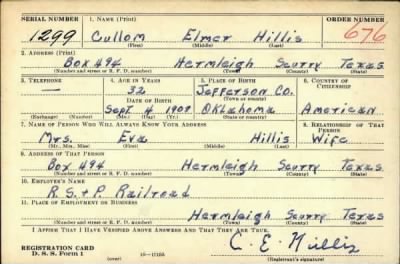 SERIAL NUMBER 1. NAME (Print) ORDER NUMBER
1299 Cullom Elmer Hillis 676
(First) (Middle) (Last)
2. ADDRESS (Print)
Box 494 Hermleigh Scurry Texas
(Number and street or R. F. D. number) (Town) (County) (State)
3. TELEPHONE 4. AGE IN YEARS 5. PLACE OF BIRTH 6. COUNTRY OF CITIZENSHIP
— 32 Jefferson Co.
DATE OF BIRTH (Town or county)
Sept 4 1907 Oklahoma American
(Exchange) (Number) (Mo.) (Day) (Yr.) (State or country)
7. NAME OF PERSON WHO WILL ALWAYS KNOW YOUR ADDRESS 8. RELATIONSHIP OF THAT PERSON
Mrs. Eva Hillis Wife
(Mr., Mrs., Miss) (First) (Middle) (Last)
9. ADDRESS OF THAT PERSON
Box 494 Hermleigh Scurry Texas
(Number and street or R. F. D. number) (Town) (County) (State)
10. EMPLOYER'S NAME
R.S.+P. Railroad
11. PLACE OF EMPLOYMENT OR BUSINESS
Hermleigh Scurry Texas
(Number and street or R. F. D. number) (Town) (County) (State)
I AFFIRM THAT I HAVE VERIFIED ABOVE ANSWERS AND THAT THEY ARE TRUE.
C. E. Hillis
REGISTRATION CARD
D. S. S. Form 1 (over) (Registrant's signature)